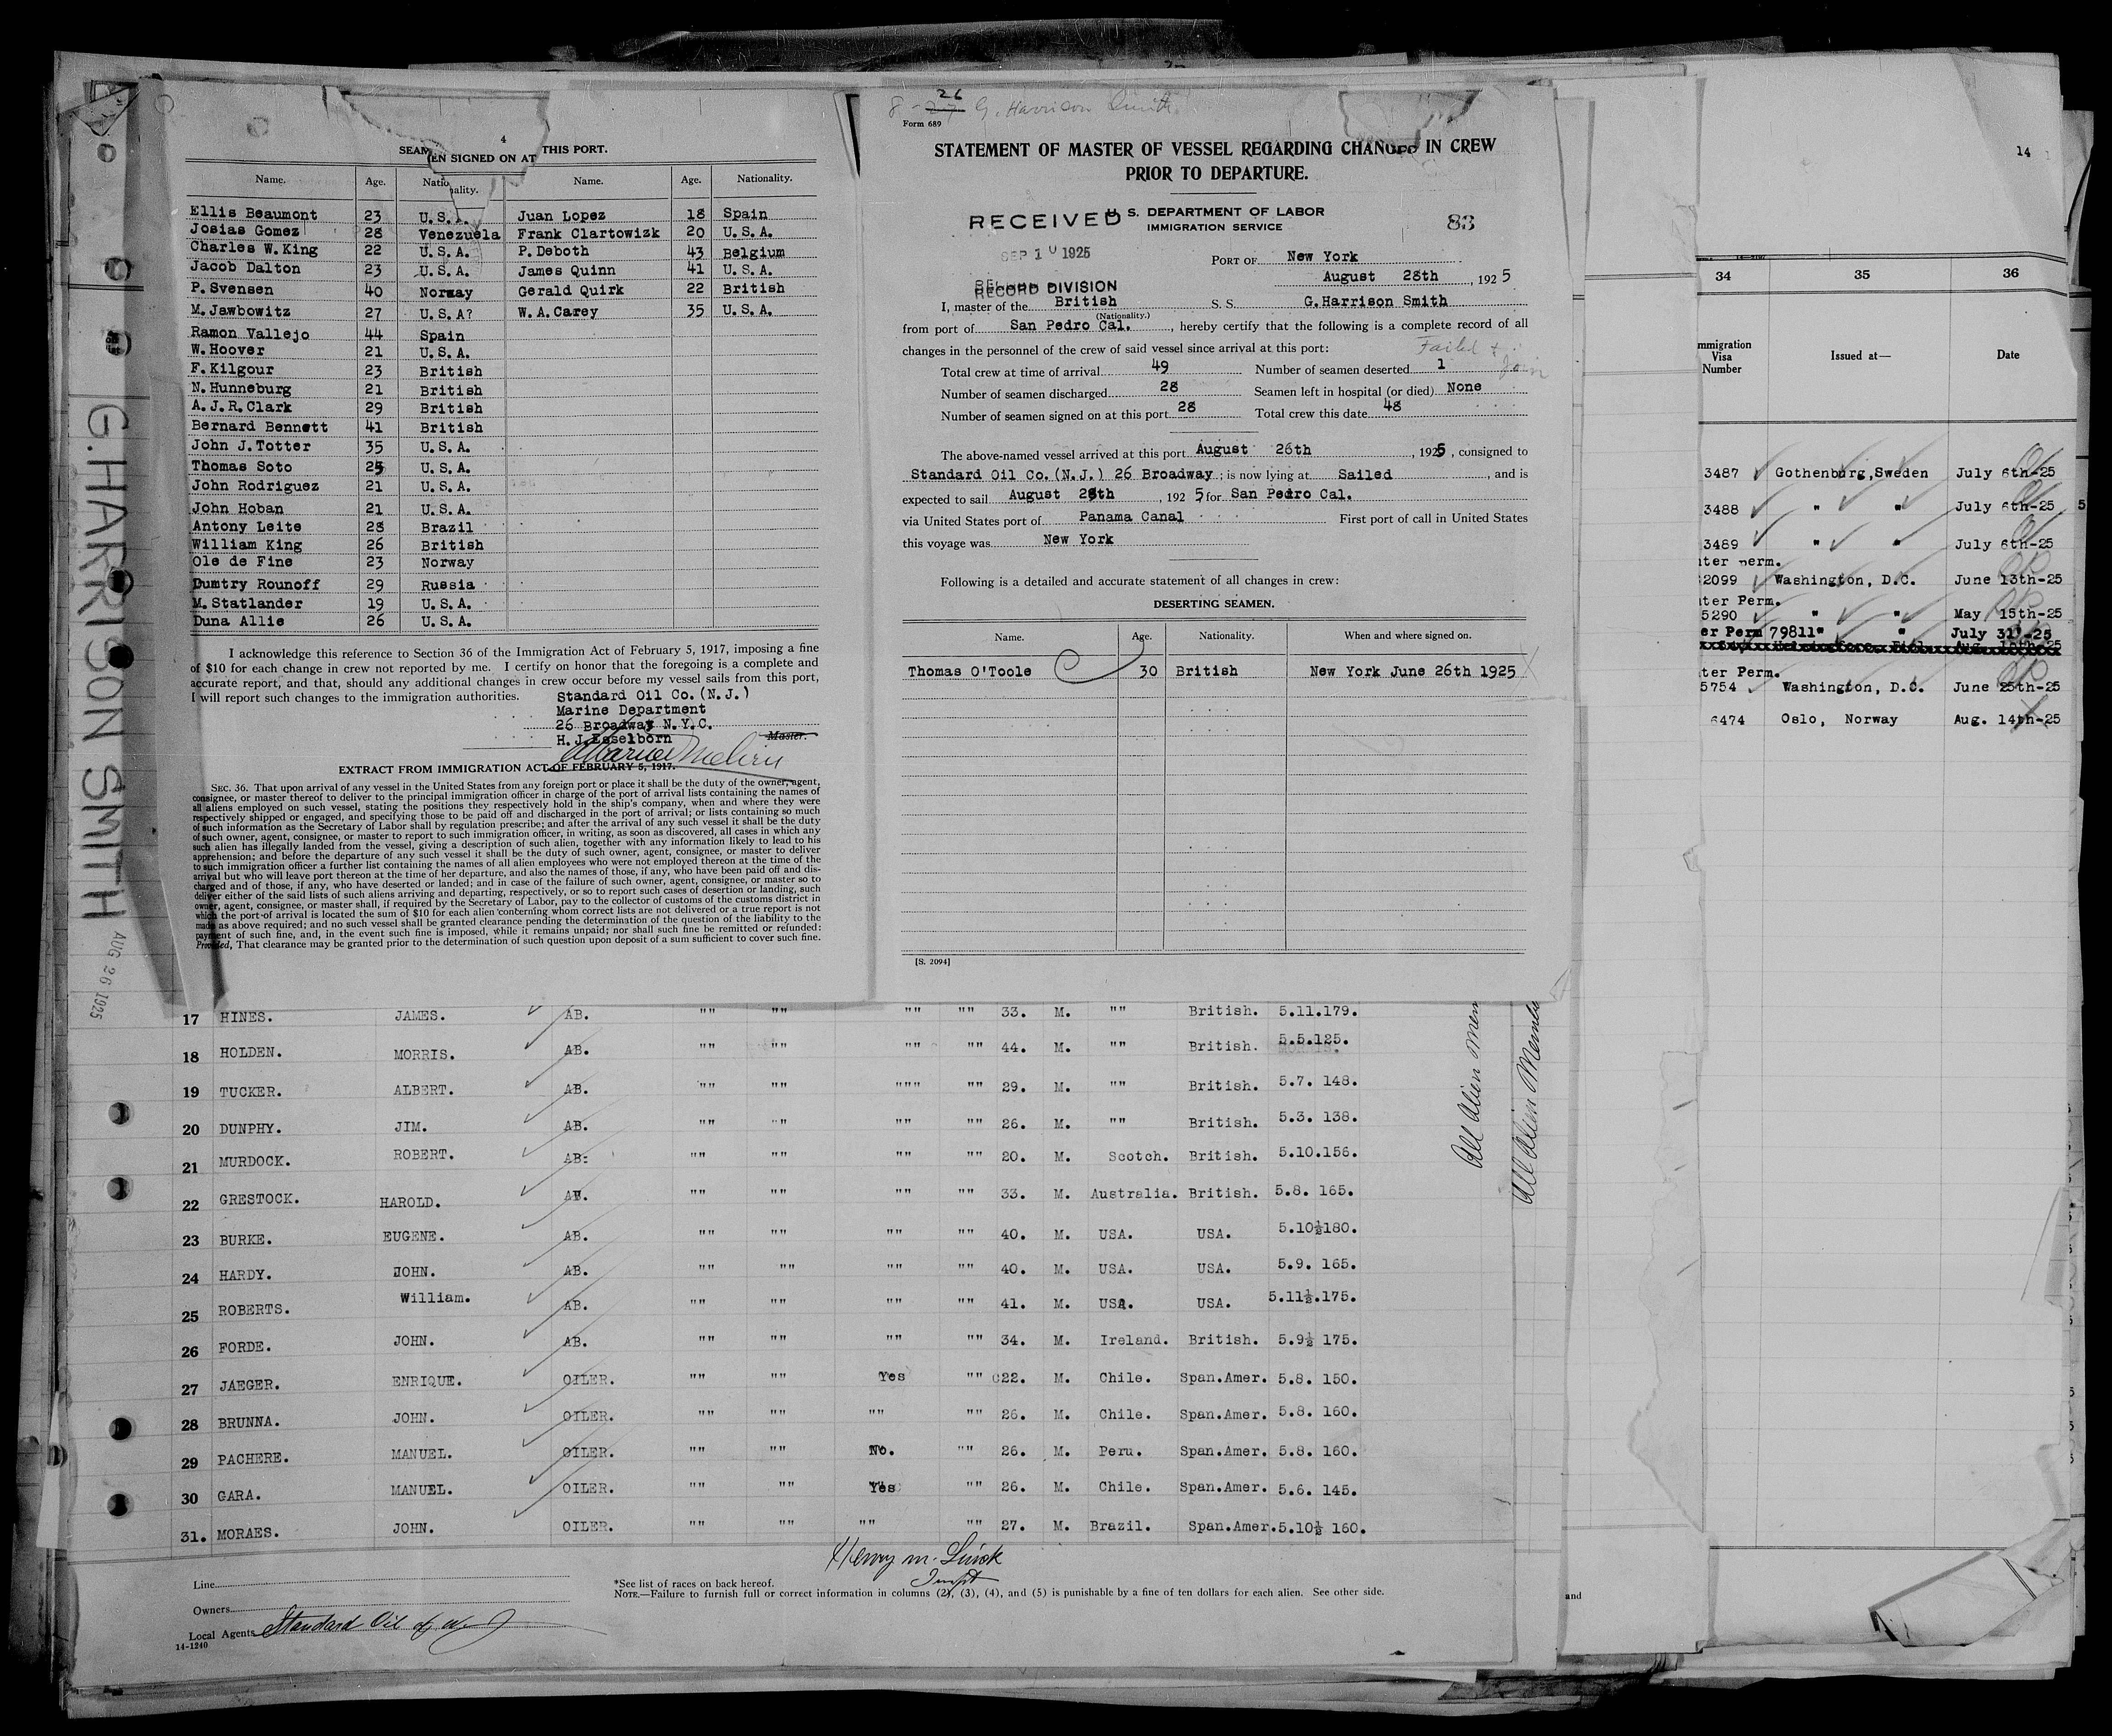 4
SEAMEN SIGNED ON AT THIS PORT.
Name. Age. Nationality. Name. Age. Nationality.
Ellis Beaumont 23 U.S.A. Juan Lopez 18 Spain
Josias Gomez 28 Venezuela Frank Clartowizk 20 U.S.A.
Charles W.King 22 U.S.A. P.Deboth 43 Belgium
Jacob Dalton 23 U.S.A. James Quinn 41 U.S.A.
P.Svensen 40 Norway Gerald Quirk 22 British
M.Jawbowitz 27 U.S.A? W.A.Carey 35 U.S.A.
Ramon Vallejo 44 Spain
W.Hoover 21 U.S.A.
F.Kilgour 23 British
N.Hunneburg 21 British
A.J.R.Clark 29 British
Bernard Bennett 41 British
John J.Totter 35 U.S.A.
Thomas Soto 25 U.S.A.
John Rodriguez 21 U.S.A.
John Hoban 21 U.S.A.
Antony Leite 28 Brazil
William King 26 British
Ole de Fine 23 Norway
Dumtry Rounoff 29 Russia
M.Statlander 19 U.S.A.
Duna Allie 26 U.S.A.
I acknowledge this reference to Section 36 of the Immigration Act of February 5, 1917, imposing a fine
of $10 for each change in crew not reported by me. I certify on honor that the foregoing is a complete and
accurate report, and that, should any additional changes in crew occur before my vessel sails from this port,
I will report such changes to the immigration authorities.
Standard Oil Co.(N.J.)
Marine Department
26 Broadway N.Y.C.
H.J.Esselborn Master.
EXTRACT FROM IMMIGRATION ACT OF FEBRUARY 5, 1917.
SEC. 36. That upon arrival of any vessel in the United States from any foreign port or place it shall be the duty of the owner, agent,
consignee, or master thereof to deliver to the principal immigration officer in charge of the port of arrival lists containing the names of
all aliens employed on such vessel, stating the positions they respectively hold in the ship's company, when and where they were
respectively shipped or engaged, and specifying those to be paid off and discharged in the port of arrival; or lists containing so much
of such information as the Secretary of Labor shall by regulation prescribe; and after the arrival of any such vessel it shall be the duty
of such owner, agent, consignee, or master to report to such immigration officer, in writing, as soon as discovered, all cases in which any
such alien has illegally landed from the vessel, giving a description of such alien, together with any information likely to lead to his
apprehension; and before the departure of any such vessel it shall be the duty of such owner, agent, consignee, or master to deliver
to such immigration officer a further list containing the names of all alien employees who were not employed thereon at the time of the
arrival but who will leave port thereon at the time of her departure, and also the names of those, if any, who have been paid off and dis-
charged and of those, if any, who have deserted or landed; and in case of the failure of such owner, agent, consignee, or master so to
deliver either of the said lists of such aliens arriving and departing, respectively, or so to report such cases of desertion or landing, such
owner, agent, consignee, or master shall, if required by the Secretary of Labor, pay to the collector of customs of the customs district in
which the port of arrival is located the sum of $10 for each alien concerning whom correct lists are not delivered or a true report is not
made as above required; and no such vessel shall be granted clearance pending the determination of the question of the liability to the
payment of such fine, and, in the event such fine is imposed, while it remains unpaid; nor shall such fine be remitted or refunded:
Provided, That clearance may be granted prior to the determination of such question upon deposit of a sum sufficient to cover such fine.
G.HARRISON SMITH
AUG 26 1925
26
8-27 G. Harrison Smith
Form 689
STATEMENT OF MASTER OF VESSEL REGARDING CHANGES IN CREW
PRIOR TO DEPARTURE.
RECEIVED U. S. DEPARTMENT OF LABOR 83
IMMIGRATION SERVICE
SEP 10 1925
PORT OF New York
August 28th, 1925
RECORD DIVISION
I, master of the British S. S. G.Harrison Smith
(Nationality.)
from port of San Pedro Cal., hereby certify that the following is a complete record of all
changes in the personnel of the crew of said vessel since arrival at this port: Failed to Join
Total crew at time of arrival 49 Number of seamen deserted 1
Number of seamen discharged 28 Seamen left in hospital (or died) None
Number of seamen signed on at this port 28 Total crew this date 48
The above-named vessel arrived at this port August 26th, 1925, consigned to
Standard Oil Co.(N.J.) 26 Broadway; is now lying at Sailed, and is
expected to sail August 28th, 1925 for San Pedro Cal.
via United States port of Panama Canal First port of call in United States
this voyage was New York
Following is a detailed and accurate statement of all changes in crew:
DESERTING SEAMEN.
Name. Age. Nationality. When and where signed on.
Thomas O'Toole 30 British New York June 26th 1925
[S. 2094]
14
34 35 36
Immigration Visa Number Issued at— Date
3487 Gothenburg,Sweden July 6th-25
3488 " " July 6th-25 5
3489 " " July 6th-25
ter perm.
2099 Washington, D.C. June 13th-25
ter Perm.
5290 " " May 15th-25
er Perm 79811 " " July 31-25
ter Perm.
5754 Washington, D.C. June 25th-25
6474 Oslo, Norway Aug. 14th-25
17 HINES. JAMES. AB. "" "" "" "" 33. M. "" British. 5.11.179.
18 HOLDEN. MORRIS. AB. "" "" "" "" 44. M. "" British. 5.5.125.
19 TUCKER. ALBERT. AB. "" "" """ "" 29. M. "" British. 5.7. 148.
20 DUNPHY. JIM. AB. "" "" "" "" 26. M. "" British. 5.3. 138.
21 MURDOCK. ROBERT. AB: "" "" "" "" 20. M. Scotch. British. 5.10.156.
22 GRESTOCK. HAROLD. AB. "" "" "" "" 33. M. Australia. British. 5.8. 165.
23 BURKE. EUGENE. AB. "" "" "" "" 40. M. USA. USA. 5.10½180.
24 HARDY. JOHN. AB. "" "" "" "" 40. M. USA. USA. 5.9. 165.
25 ROBERTS. William. AB. "" "" "" "" 41. M. USA. USA. 5.11½.175.
26 FORDE. JOHN. AB. "" "" "" "" 34. M. Ireland. British. 5.9½ 175.
27 JAEGER. ENRIQUE. OILER. "" "" Yes "" 22. M. Chile. Span.Amer. 5.8. 150.
28 BRUNNA. JOHN. OILER. "" "" "" "" 26. M. Chile. Span.Amer. 5.8. 160.
29 PACHERE. MANUEL. OILER. "" "" No. "" 26. M. Peru. Span.Amer. 5.8. 160.
30 GARA. MANUEL. OILER. "" "" Yes "" 26. M. Chile. Span.Amer. 5.6. 145.
31. MORAES. JOHN. OILER. "" "" "" "" 27. M. Brazil. Span.Amer. 5.10½ 160.
All Alien Mem
All Alien Members
Line
Owners
Local Agents Standard Oil of N. J
14-1240
Henry M.
*See list of races on back hereof.
NOTE.—Failure to furnish full or correct information in columns (2), (3), (4), and (5) is punishable by a fine of ten dollars for each alien. See other side.
and